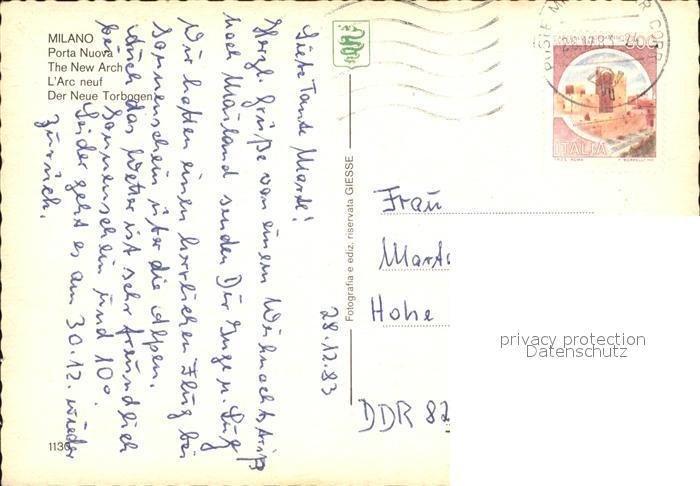 MILANO
Porta Nuova
The New Arch
L'Arc neuf
Der Neue Torbogen
28.12.83
Liebe Tante Marta!
Herzl. Grüße von einem Weihnachtstrip
nach Mailand senden Dir Inge u.
Wir hatten einen herrlichen Flug bei
Sonnenschein über die Alpen.
Auch das Wetter ist sehr freundlich
bei Sonnenschein und 10°.
Leider geht es am 30.12. wieder
zurück.
Fotografia e ediz. riservata GIESSE
ITALIA
Frau
Hohe
DDR 82
privacy protection
Datenschutz
1130